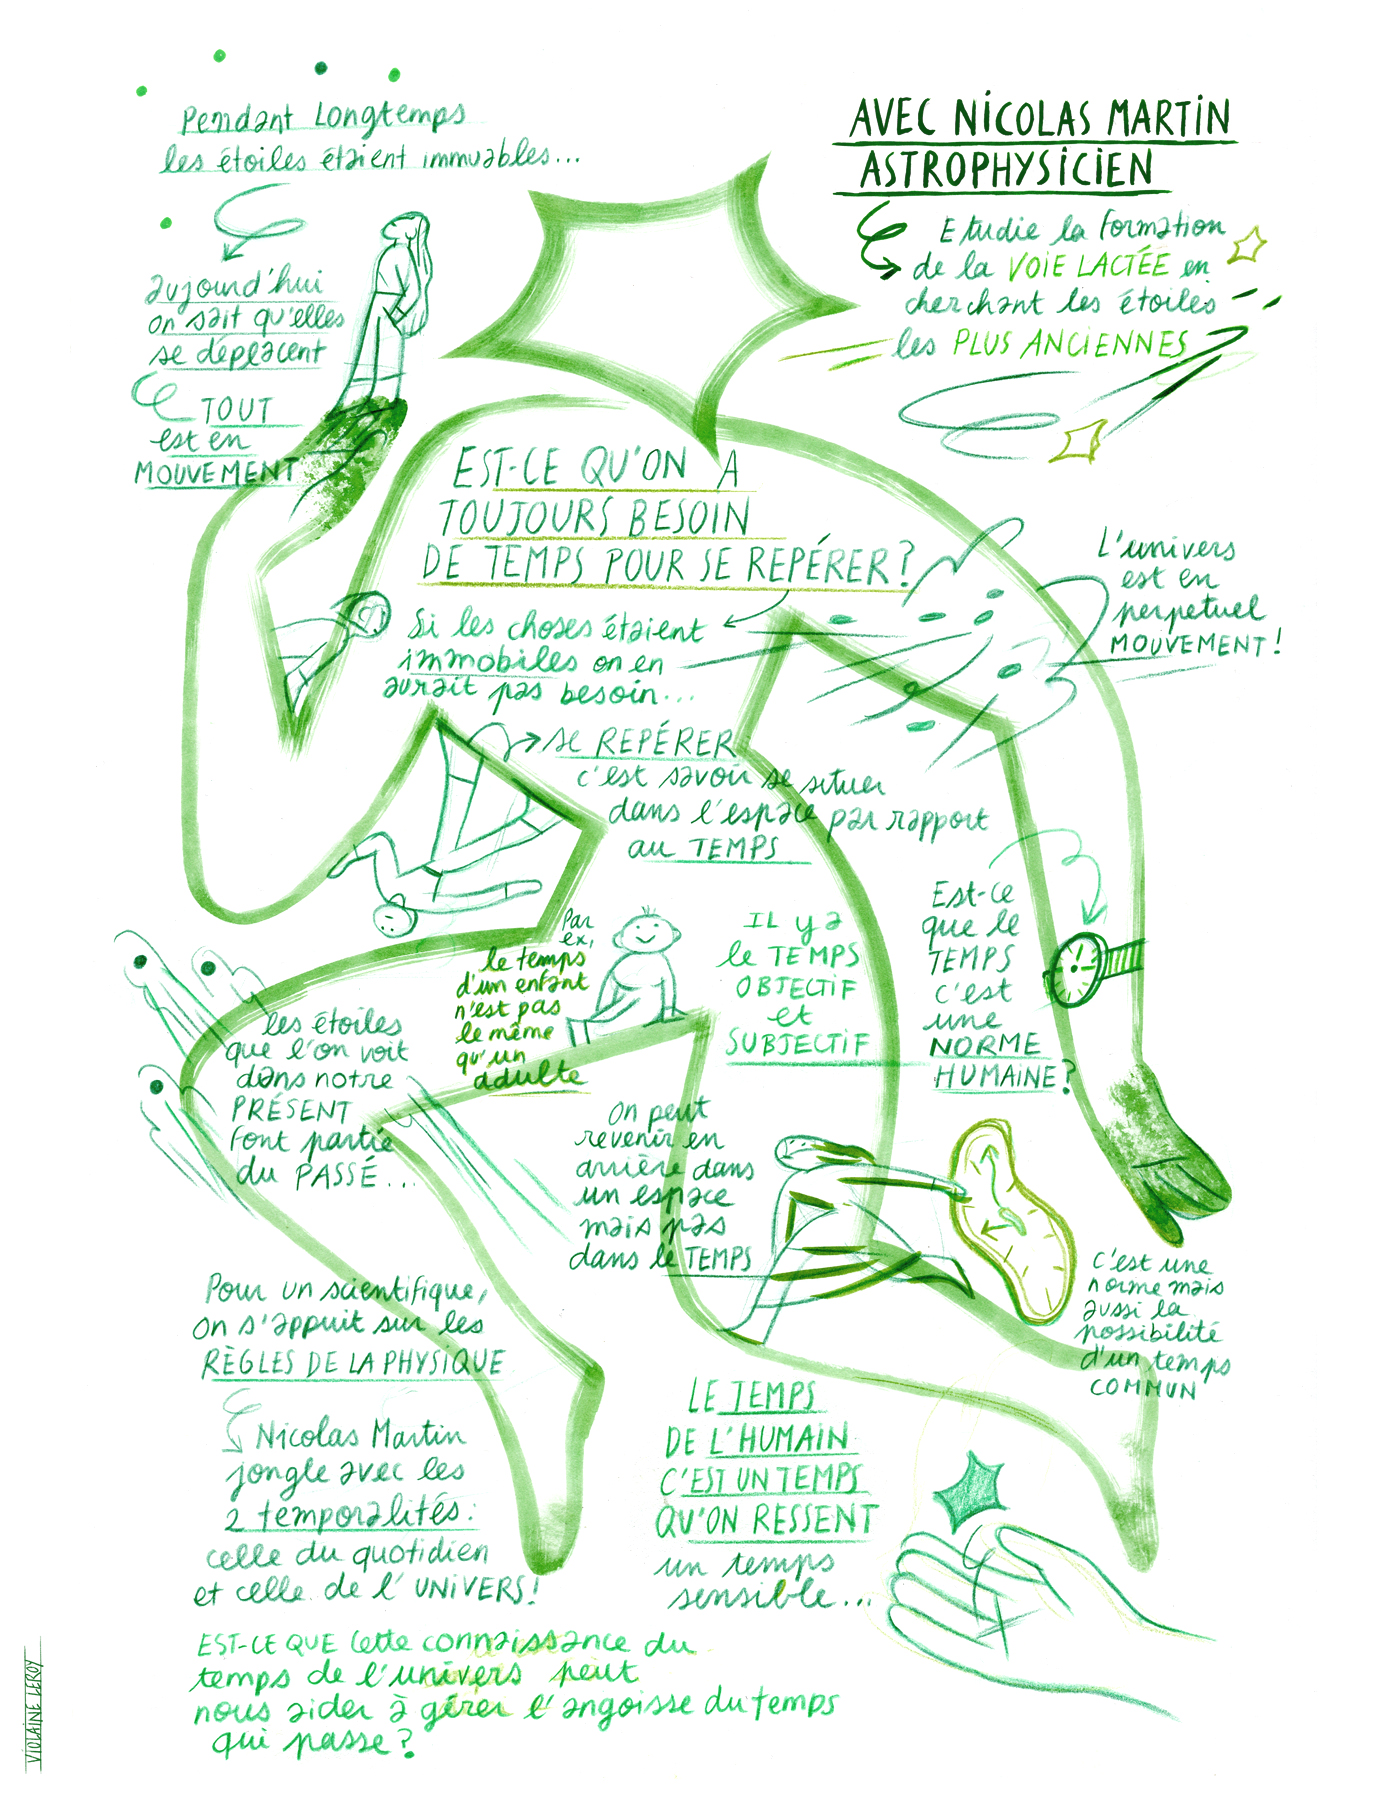 Pendant Longtemps
les étoiles étaient immuables...
aujourd'hui
on sait qu'elles
se déplacent
TOUT
est en
MOUVEMENT
AVEC NICOLAS MARTIN
ASTROPHYSICIEN
Etudie la formation
de la VOIE LACTÉE en
cherchant les étoiles
les PLUS ANCIENNES
EST-CE QU'ON A
TOUJOURS BESOIN
DE TEMPS POUR SE REPÉRER?
Si les choses étaient
immobiles on en
aurait pas besoin...
L'univers
est en
perpetuel
MOUVEMENT!
se REPÉRER
c'est savoir se situer
dans l'espace par rapport
au TEMPS
Par
ex,
le temps
d'un enfant
n'est pas
le même
qu'un
adulte
IL y a
le TEMPS
OBJECTIF
et
SUBJECTIF
Est-ce
que le
TEMPS
c'est
une
NORME
HUMAINE?
les étoiles
que l'on voit
dans notre
PRÉSENT
font partie
du PASSÉ...
On peut
revenir en
arrière dans
un espace
mais pas
dans le TEMPS
C'est une
norme mais
aussi la
possibilité
d'un temps
COMMUN
Pour un scientifique,
on s'appuit sur les
RÈGLES DE LA PHYSIQUE
Nicolas Martin
jongle avec les
2 temporalités:
celle du quotidien
et celle de l'UNIVERS!
LE TEMPS
DE L'HUMAIN
C'EST UN TEMPS
QU'ON RESSENT
un temps
sensible...
EST-CE QUE cette connaissance du
temps de l'univers peut
nous aider à gérer l'angoisse du temps
qui passe?
VIOLAINE LEROY